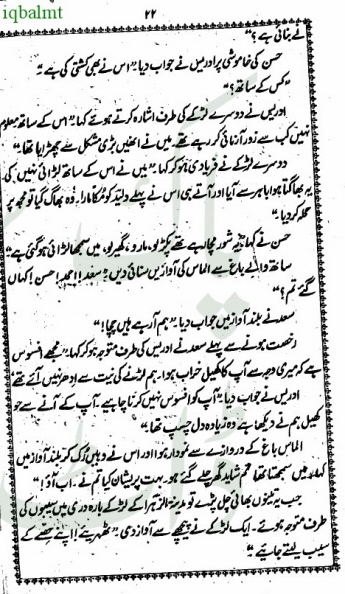 iqbalmt
۲۲
نے بنائی ہے؟"
حسن کی خاموشی پر ادریس نے جواب دیا "اس نے بھی کشتی کی ہے۔"
"کس کے ساتھ؟"
ادریس نے دوسرے لڑکے کی طرف اشارہ کرتے ہوئے کہا "اس کے ساتھ معلوم
نہیں کب سے زور آزمائی کر رہے تھے۔ میں نے انھیں بڑی مشکل سے چھڑایا تھا۔"
دوسرے لڑکے نے فریادی ہو کر کہا "میں نے اس کے ساتھ لڑائی نہیں کی
یہ بھاگتا ہوا باہر سے آیا اور آتے ہی اس نے پہلے ولید کو مکا مارا۔ وہ بھاگ گیا تو مجھ پر
حملہ کر دیا۔"
حسن نے کہا "یہ شور مچا رہے تھے پکڑ لو، مارو، گھیر لو، میں سمجھا لڑائی ہو گئی ہے"
ساتھ والے باغ سے الماس کی آوازیں سنائی دیں "سعد!! احمد! حسن! کہاں
گئے تم؟"
سعد نے بلند آواز میں جواب دیا۔ "ہم آ رہے ہیں چچا!"
رخصت ہونے سے پہلے سعد نے ادریس کی طرف متوجہ ہو کر کہا "مجھے افسوس
ہے کہ میری وجہ سے آپ کا کھیل خراب ہوا۔ ہم لڑنے کی نیت سے ادھر نہیں آئے تھے"
ادریس نے جواب دیا "آپ کو افسوس نہیں کرنا چاہیے، آپ کے آنے سے جو
کھیل ہم نے دیکھا ہے وہ زیادہ دل چسپ تھا۔"
الماس باغ کے دروازے سے نمودار ہوا اور اس نے وہیں رک کر بلند آواز میں
کہا "میں سمجھتا تھا تم شاید گھر چلے گئے ہو۔ بہت پریشان کیا تم نے۔ اب آؤ!"
جب یہ تینوں بھائی چل پڑے تو مدینۃ الزہرا کے لڑکے بارہ دری میں سیبوں کی
طرف متوجہ ہوئے۔ ایک لڑکے نے پیچھے سے آواز دی "ٹھہریے! اپنے حصے کے
سیب لیتے جایئے"